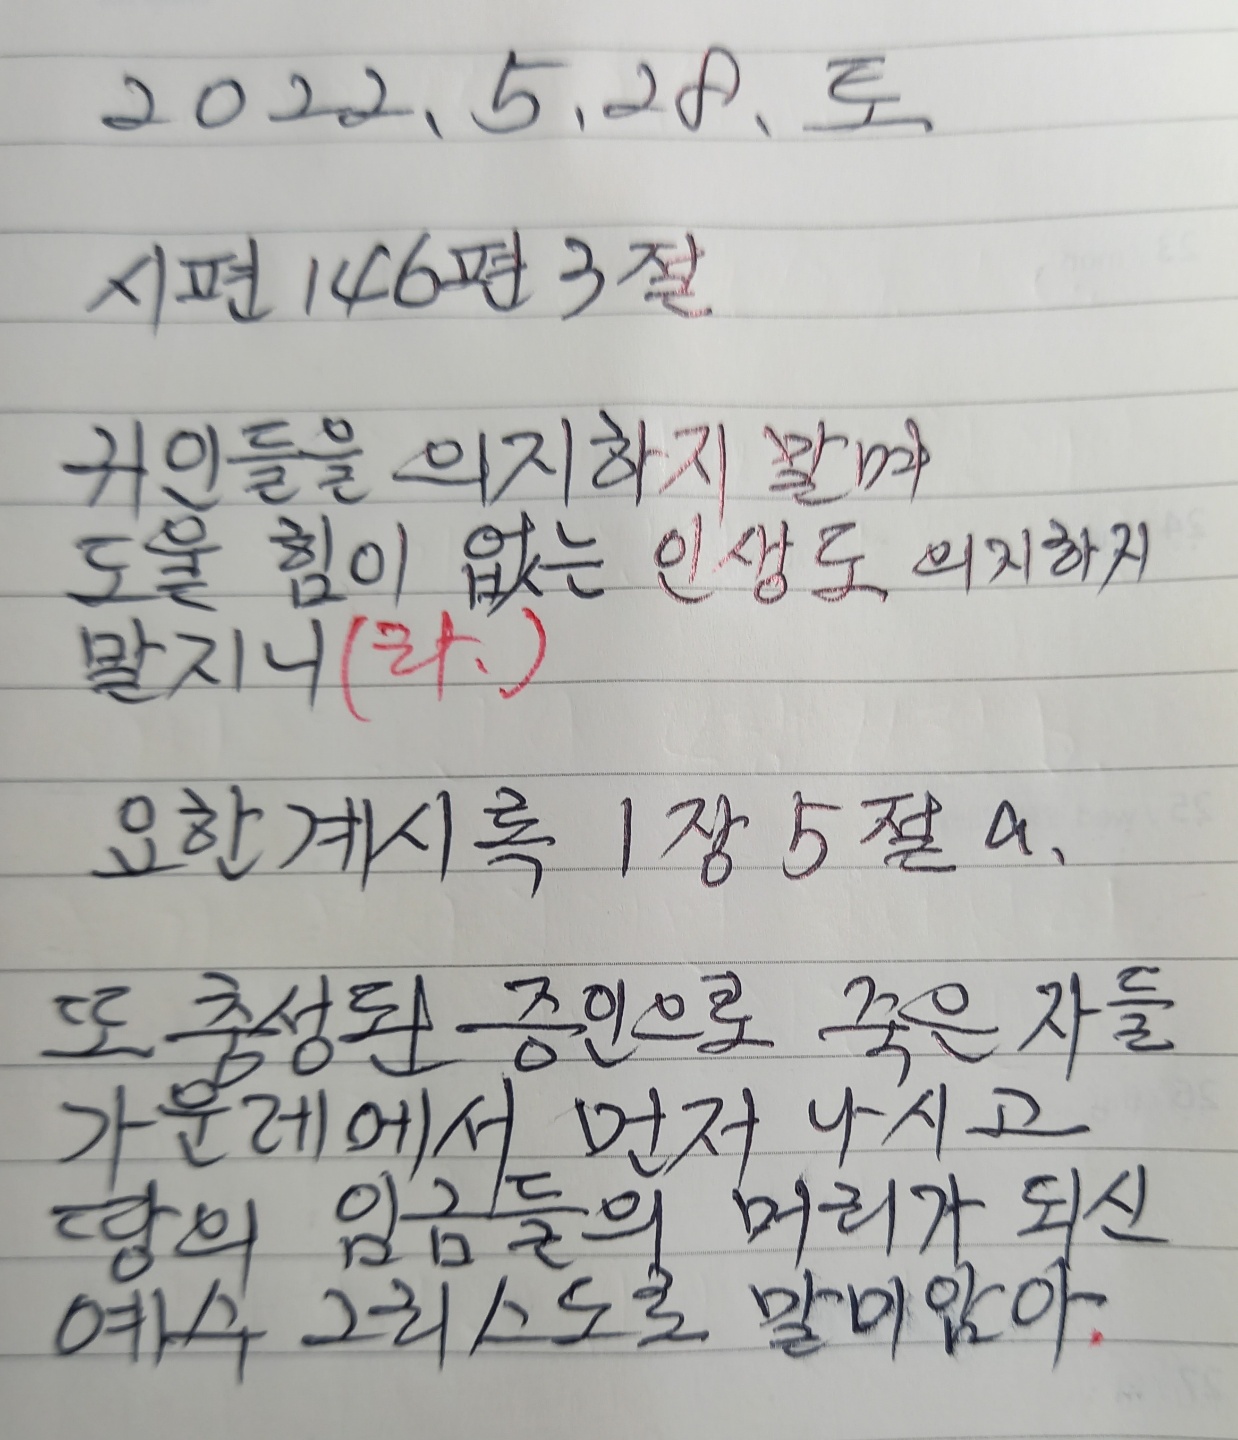 2022. 5. 28. 토
시편 146편 3절
귀인들을 의지하지 말며
도울 힘이 없는 인생도 의지하지
말지니(라.)
요한계시록 1장 5절 a.
또 충성된 증인으로 죽은 자들
가운데에서 먼저 나시고
땅의 임금들의 머리가 되신
예수 그리스도로 말미암아.